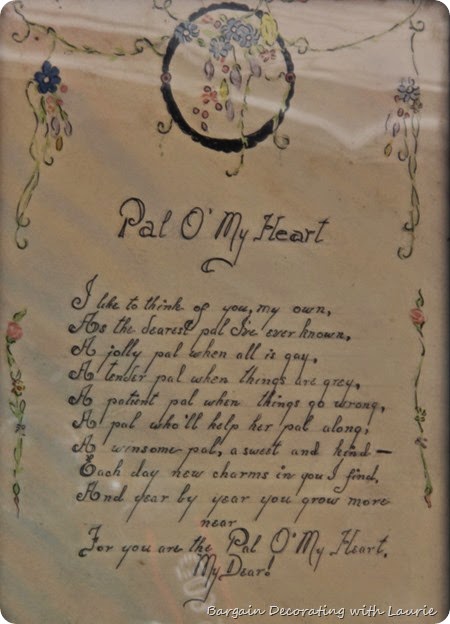 Pal O' My Heart
I like to think of you, my own,
As the dearest pal I've ever known,
A jolly pal when all is gay,
A tender pal when things are grey,
A patient pal when things go wrong,
A pal who'll help her pal along,
A winsome pal, a sweet and kind —
Each day new charms in you I find,
And year by year you grow more
near
For you are the Pal O' My Heart,
My Dear!
Bargain Decorating with Laurie